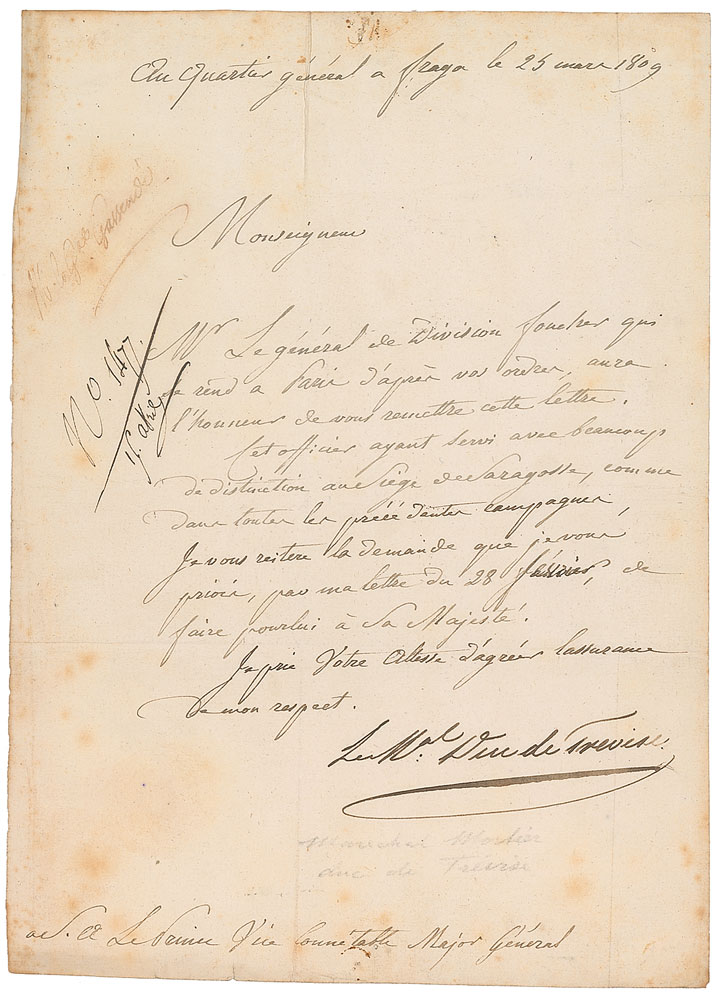 Au Quartier général a fraga le 25 mars 1809
Monseigneur
No. 147.
Mr Le général de Division foucher qui
se rend a Paris d'après vos ordres, aura
l'honneur de vous remettre cette lettre.
Cet officier ayant servi avec beaucoup
de distinction au Siège de Saragosse, comme
dans toutes les précédentes campagnes,
Je vous reitere la demande que je vous
priois, par ma lettre du 28 février, de
faire pour lui à Sa Majesté.
Je prie Votre Altesse d'agréer lassurance
de mon respect.
Le Mal. Duc de Trevise.
Marechal Mortier
duc de Trevise
a S. A Le Prince Vice Connetable Major Général